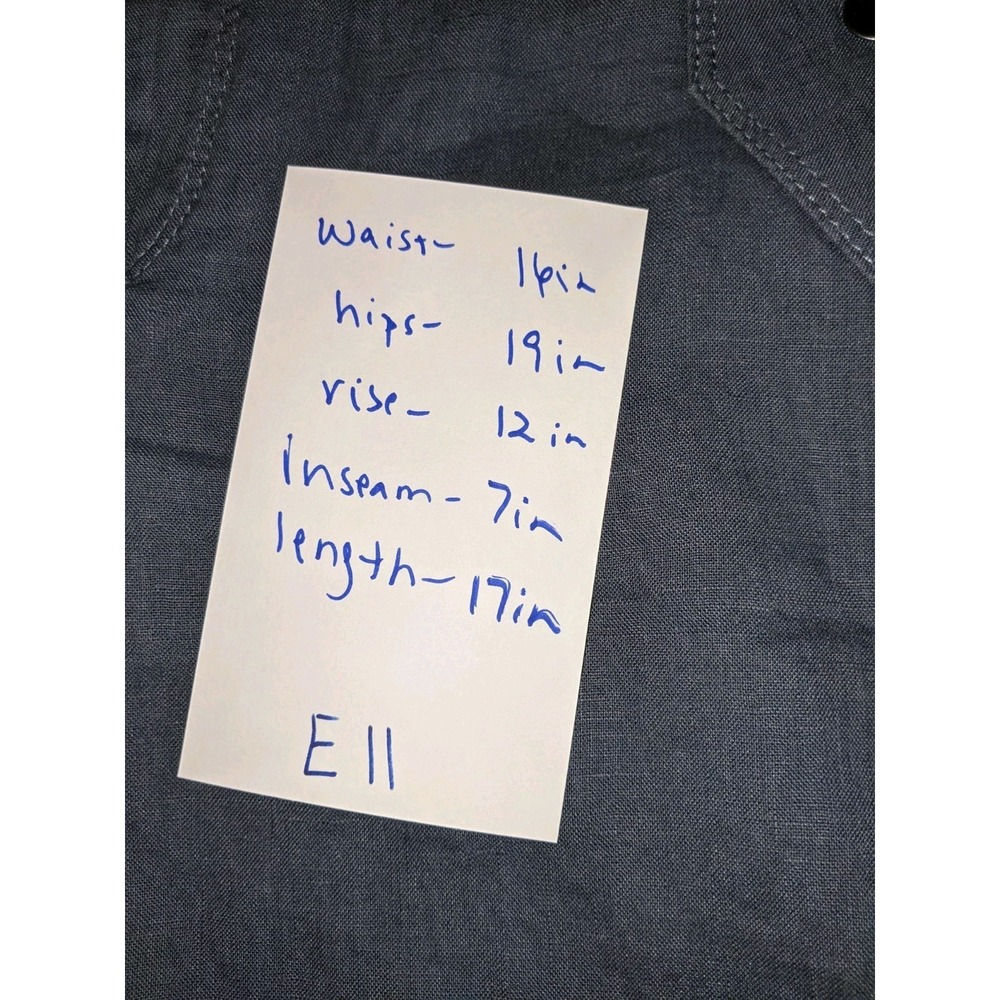 Waist- 16in
hips- 19in
rise- 12in
Inseam- 7in
length- 17in
E11